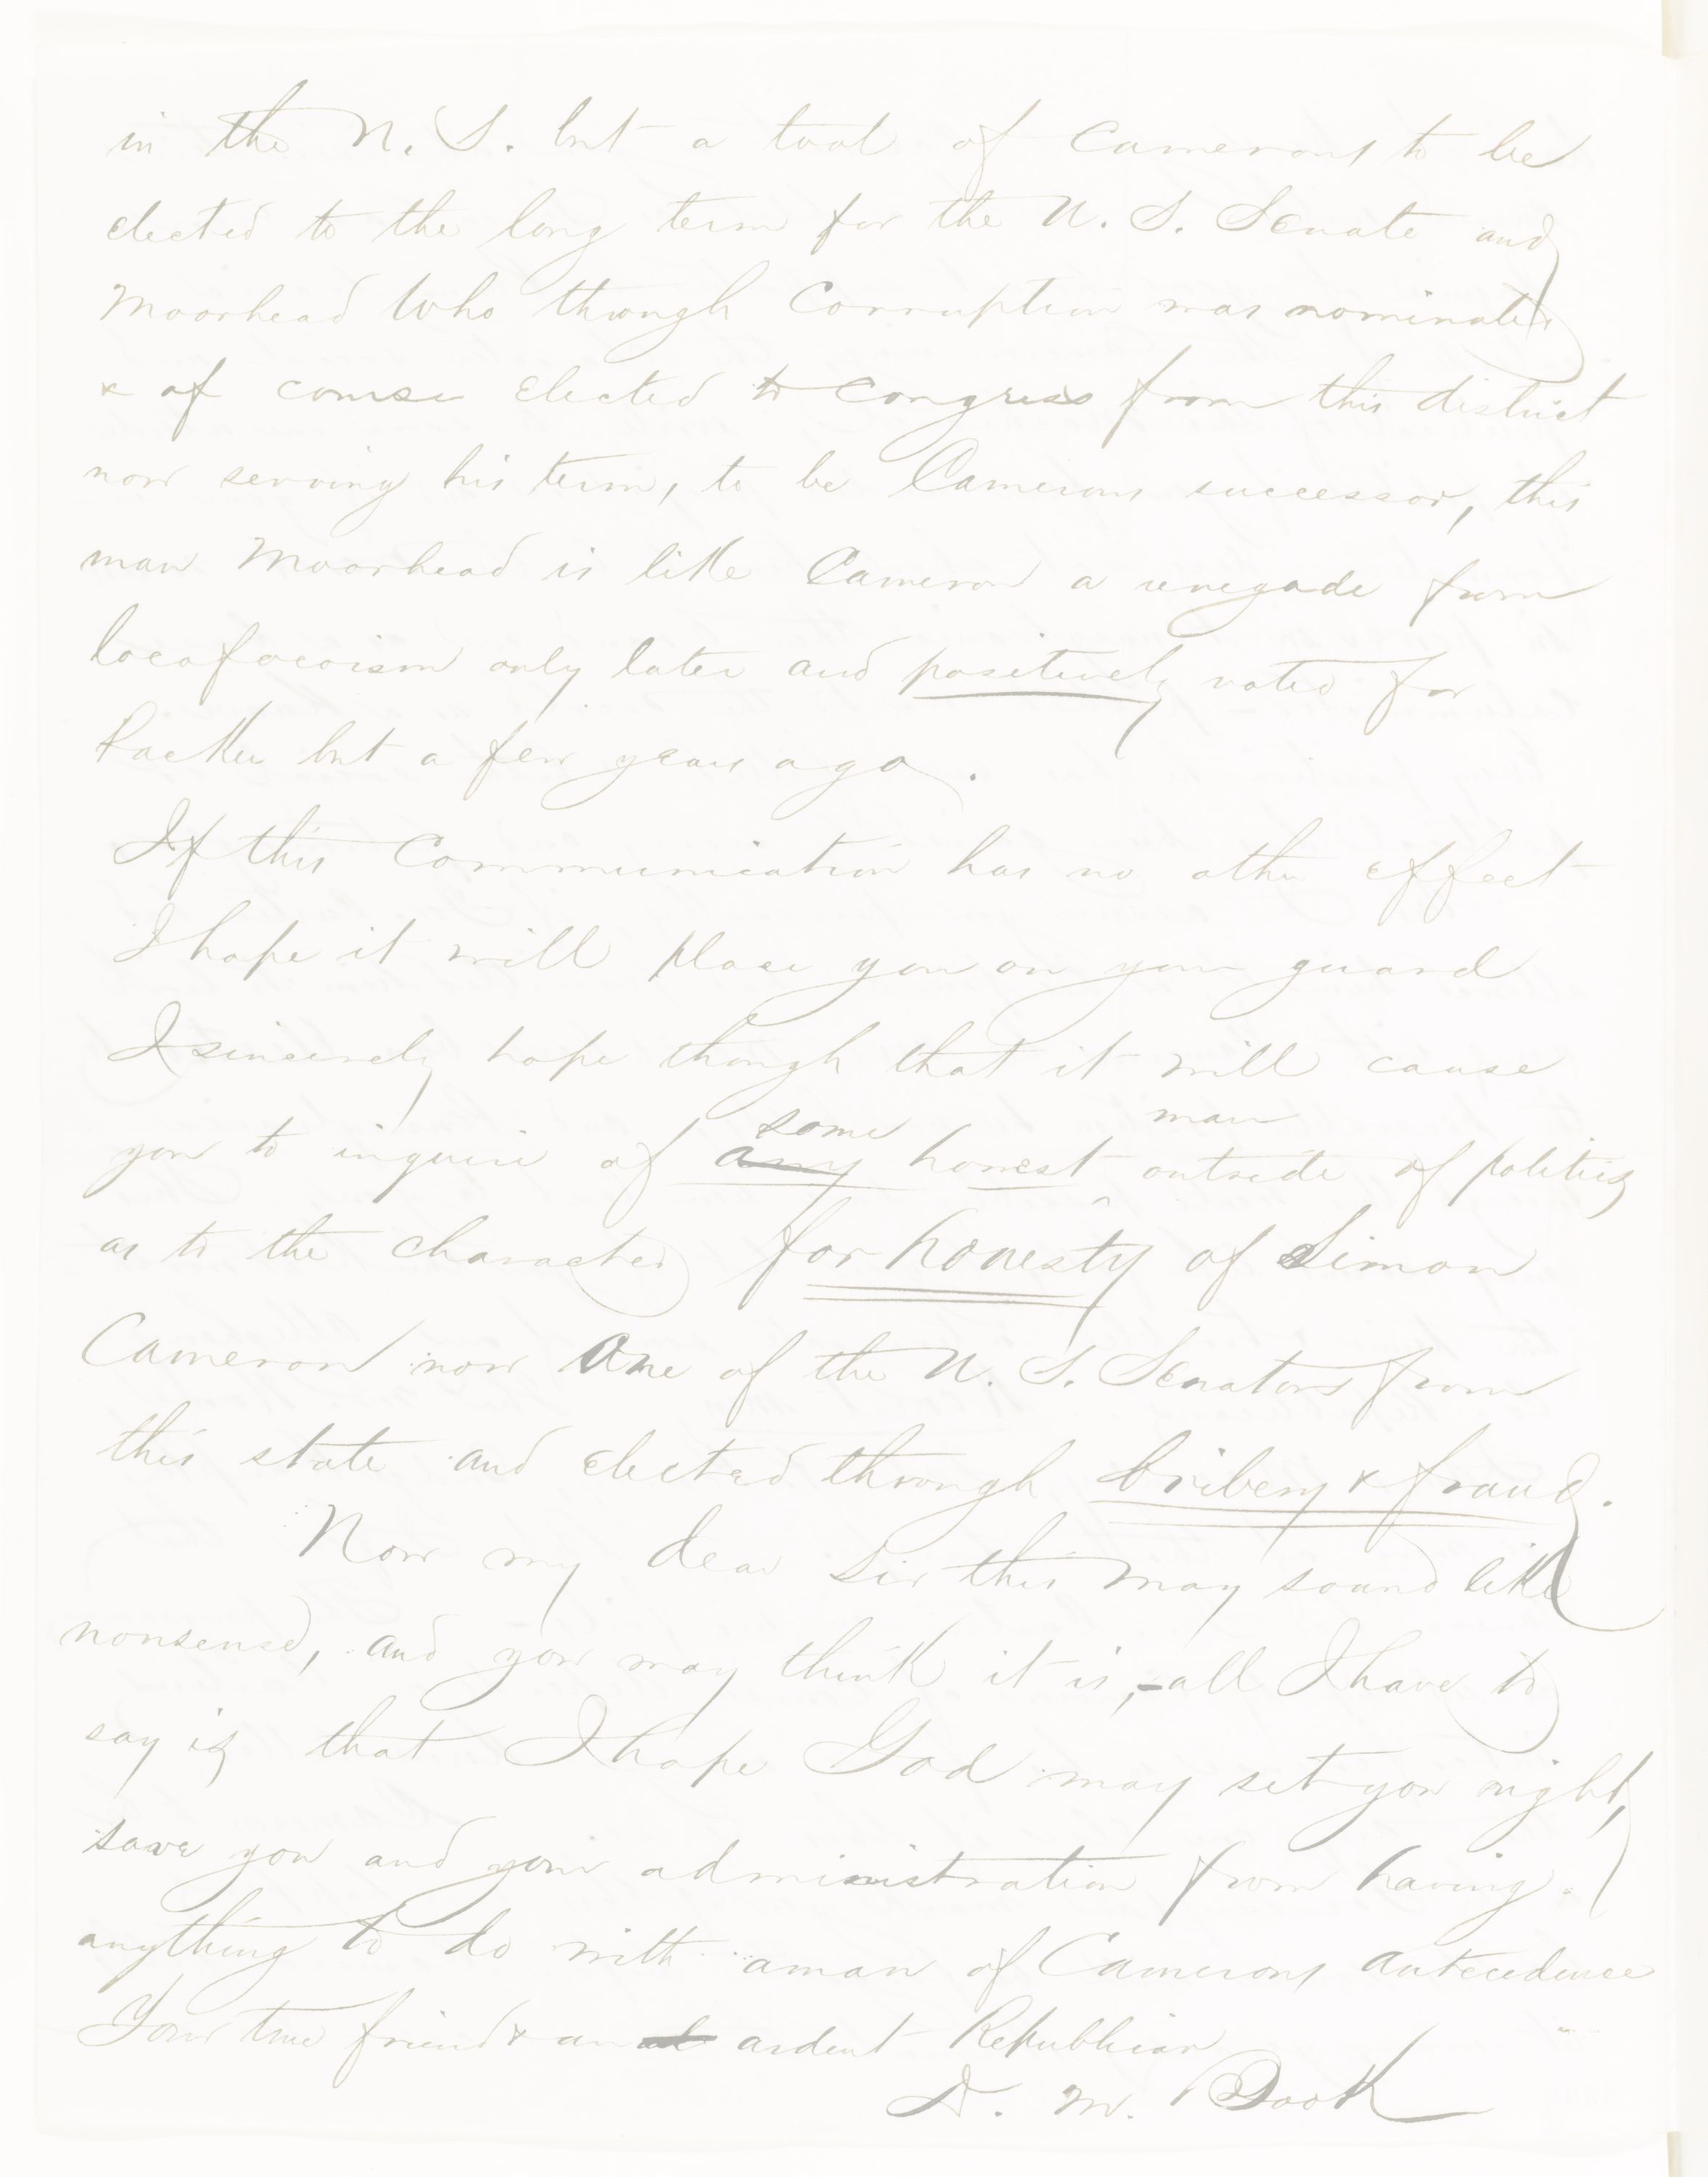 in the U. S. but a tool of Camerons to be
elected to the long term for the U. S. Senate and
Moorhead who through Corruption was nominated
& of course elected to Congress from this district
now serving his term, to be Camerons successor, this
man Moorhead is like Cameron a renegade from
locofocoism only later and positively voted for
Packer but a few years ago.
If this Communication has no other effect
I hope it will place you on your guard
I sincerely hope though that it will cause
some man
you to inquire of any honest outside of politics
as to the character for honesty of Simon
Cameron now one of the U. S. Senators from
this state and elected through bribery & fraud.
Now my dear Sir this may sound like
nonsense, and you may think it is,- all I have to
say is that I hope God may set you right,
save you and your administration from having
anything to do with a man of Camerons antecedence
Your true friend & an ardent Republican
D. M. Book